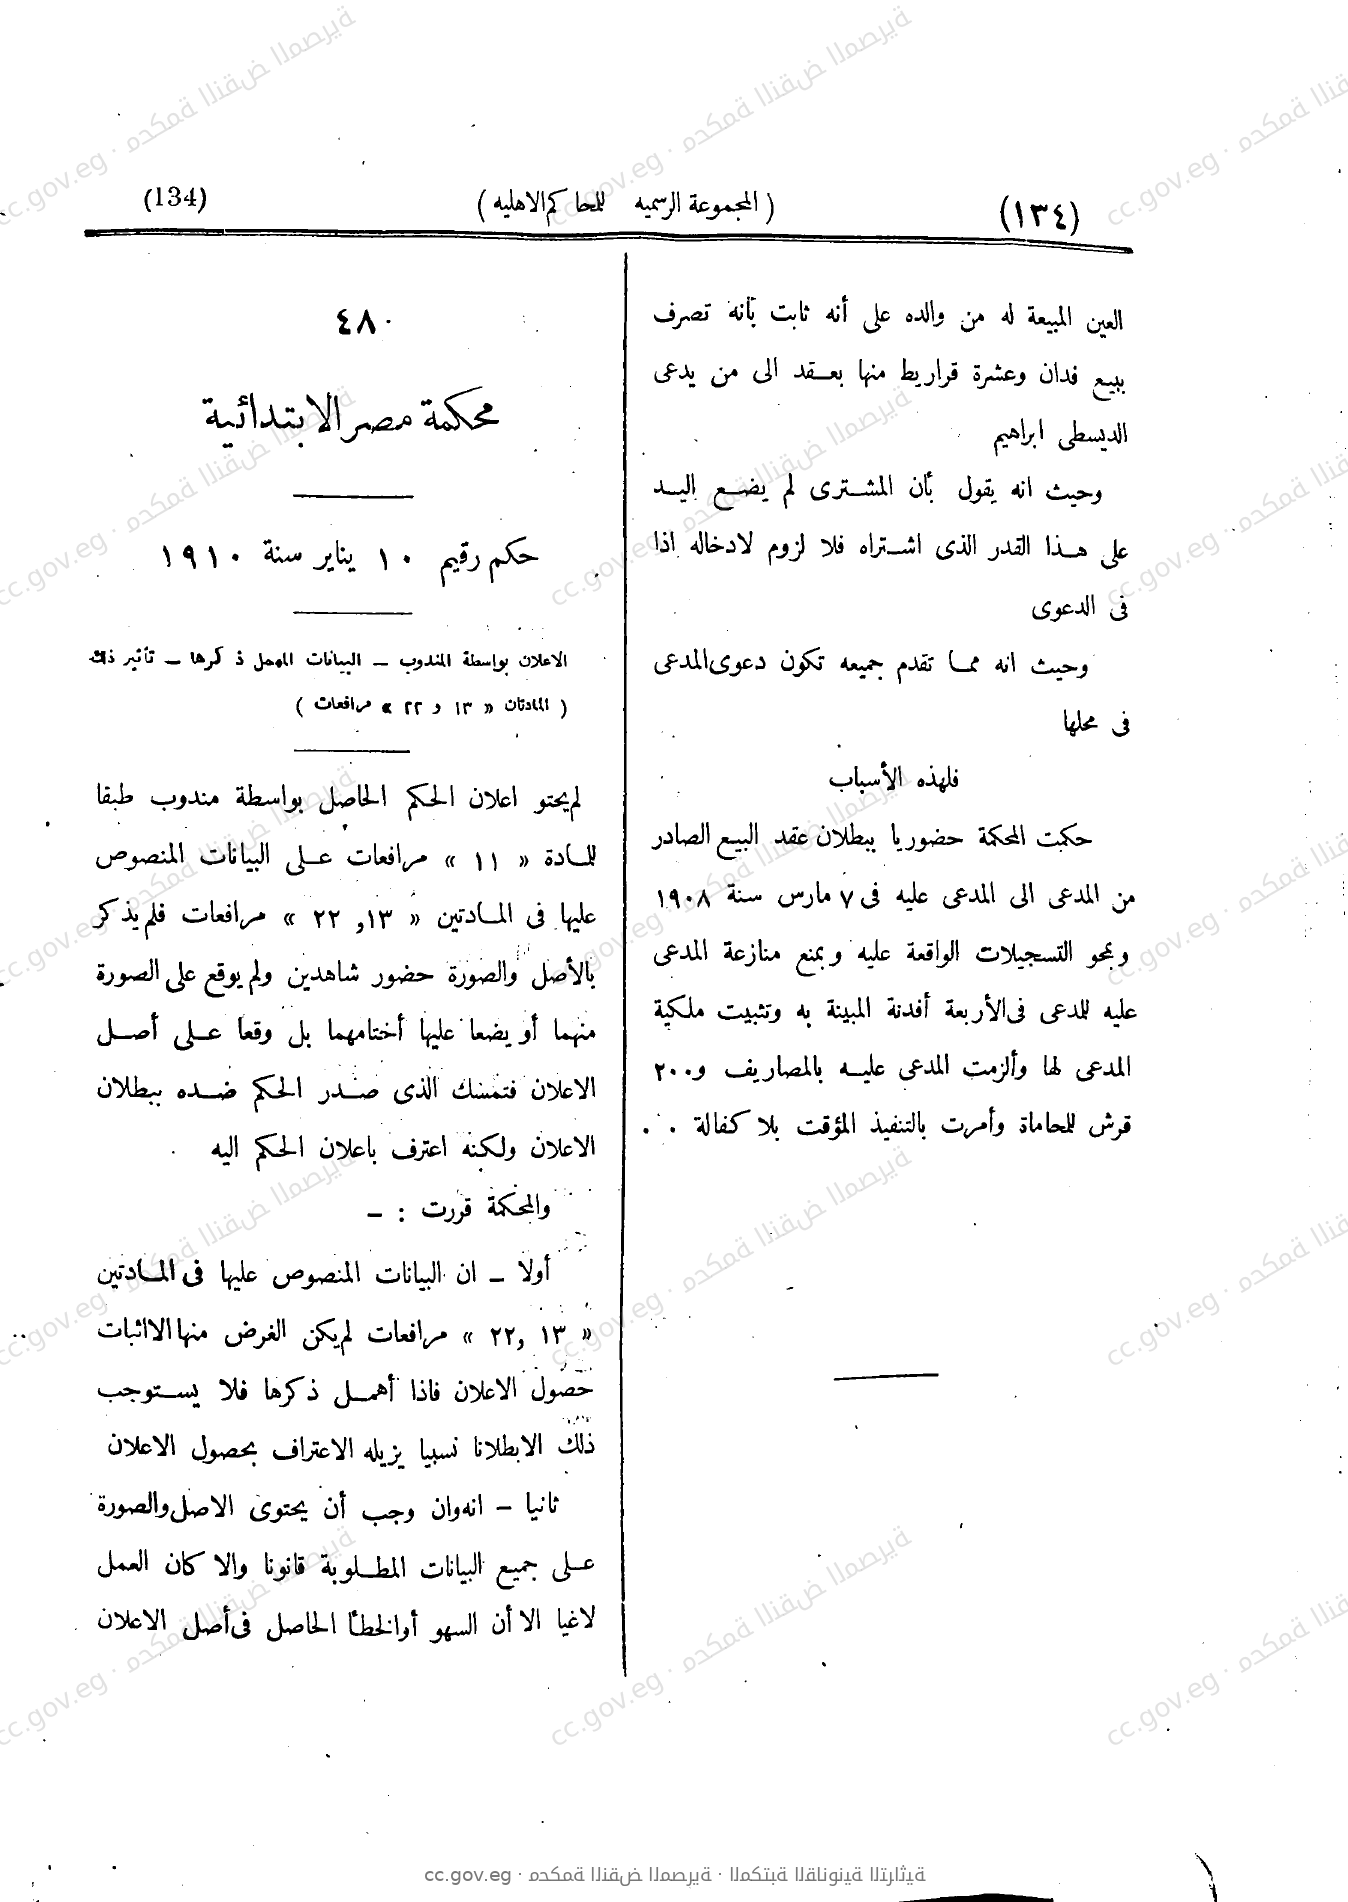 (١٣٤)
( المجموعة الرسميه للمحاكم الاهليه )
(134)
العين المبيعة له من والده على أنه ثابت بأنه تصرف
ببيع فدان وعشرة قراريط منها بعقد الى من يدعى
الديسطى ابراهيم
وحيث انه يقول بأن المشترى لم يضع اليد
على هذا القدر الذى اشتراه فلا لزوم لادخاله اذا
فى الدعوى
وحيث انه مما تقدم جميعه تكون دعوى المدعى
فى محلها
فلهذه الأسباب
حكمت المحكمة حضوريا ببطلان عقد البيع الصادر
من المدعى الى المدعى عليه فى ٧ مارس سنة ١٩٠٨
وبمحو التسجيلات الواقعة عليه وبمنع منازعة المدعى
عليه للمدعى فى الأربعة أفدنة المبينة به وتثبيت ملكية
المدعى لها وألزمت المدعى عليه بالمصاريف و٢٠٠
قرش للمحاماة وأمرت بالتنفيذ المؤقت بلا كفالة . .
٤٨٠
محكمة مصر الابتدائية
حكم رقيم ١٠ يناير سنة ١٩١٠
الاعلان بواسطة المندوب – البيانات المهمل ذكرها – تأثير ذلك
( المادتان « ١٣ و ٢٢ » مرافعات )
لم يحتو اعلان الحكم الحاصل بواسطة مندوب طبقا
للمادة « ١١ » مرافعات على البيانات المنصوص
عليها فى المادتين « ١٣ و ٢٢ » مرافعات فلم يذكر
بالأصل والصورة حضور شاهدين ولم يوقع على الصورة
منهما أو يضعا عليها أختامهما بل وقعا على أصل
الاعلان فتمسك الذى صدر الحكم ضده ببطلان
الاعلان ولكنه اعترف باعلان الحكم اليه
والمحكمة قررت : –
أولا – ان البيانات المنصوص عليها فى المادتين
« ١٣ و ٢٢ » مرافعات لم يكن الغرض منها الا اثبات
حصول الاعلان فاذا أهمل ذكرها فلا يستوجب
ذلك الا بطلانا نسبيا يزيله الاعتراف بحصول الاعلان
ثانيا – انه وان وجب أن يحتوى الاصل والصورة
على جميع البيانات المطلوبة قانونا والا كان العمل
لاغيا الا أن السهو أو الخطأ الحاصل فى أصل الاعلان
cc.gov.eg · محكمة النقض المصرية · المكتبة القانونية التراثية